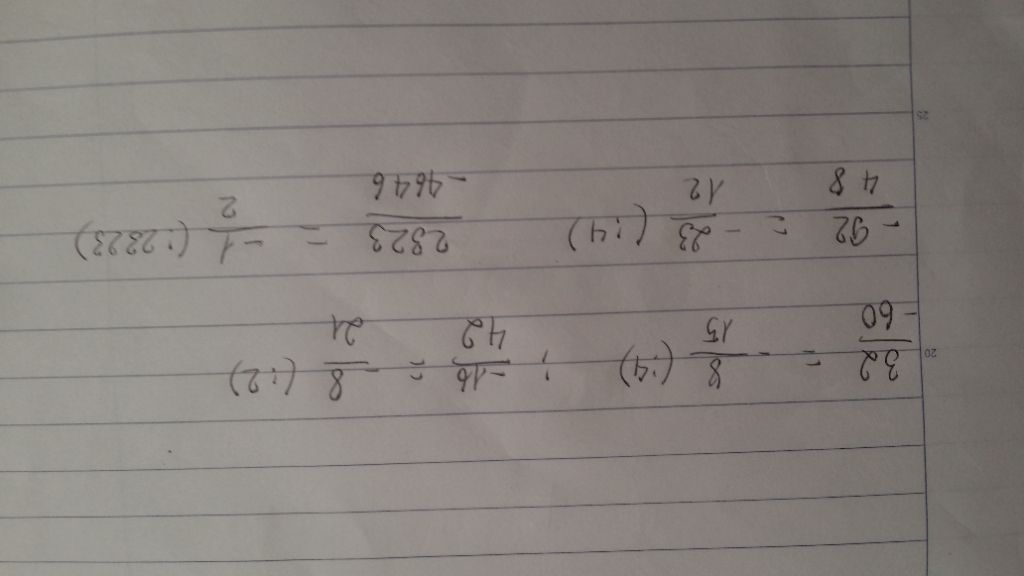 20
32/-60 = - 8/15 (:4) ; -16/42 = - 8/21 (:2)
-92/48 = - 23/12 (:4) 2323/-4646 = - 1/2 (:2323)
25